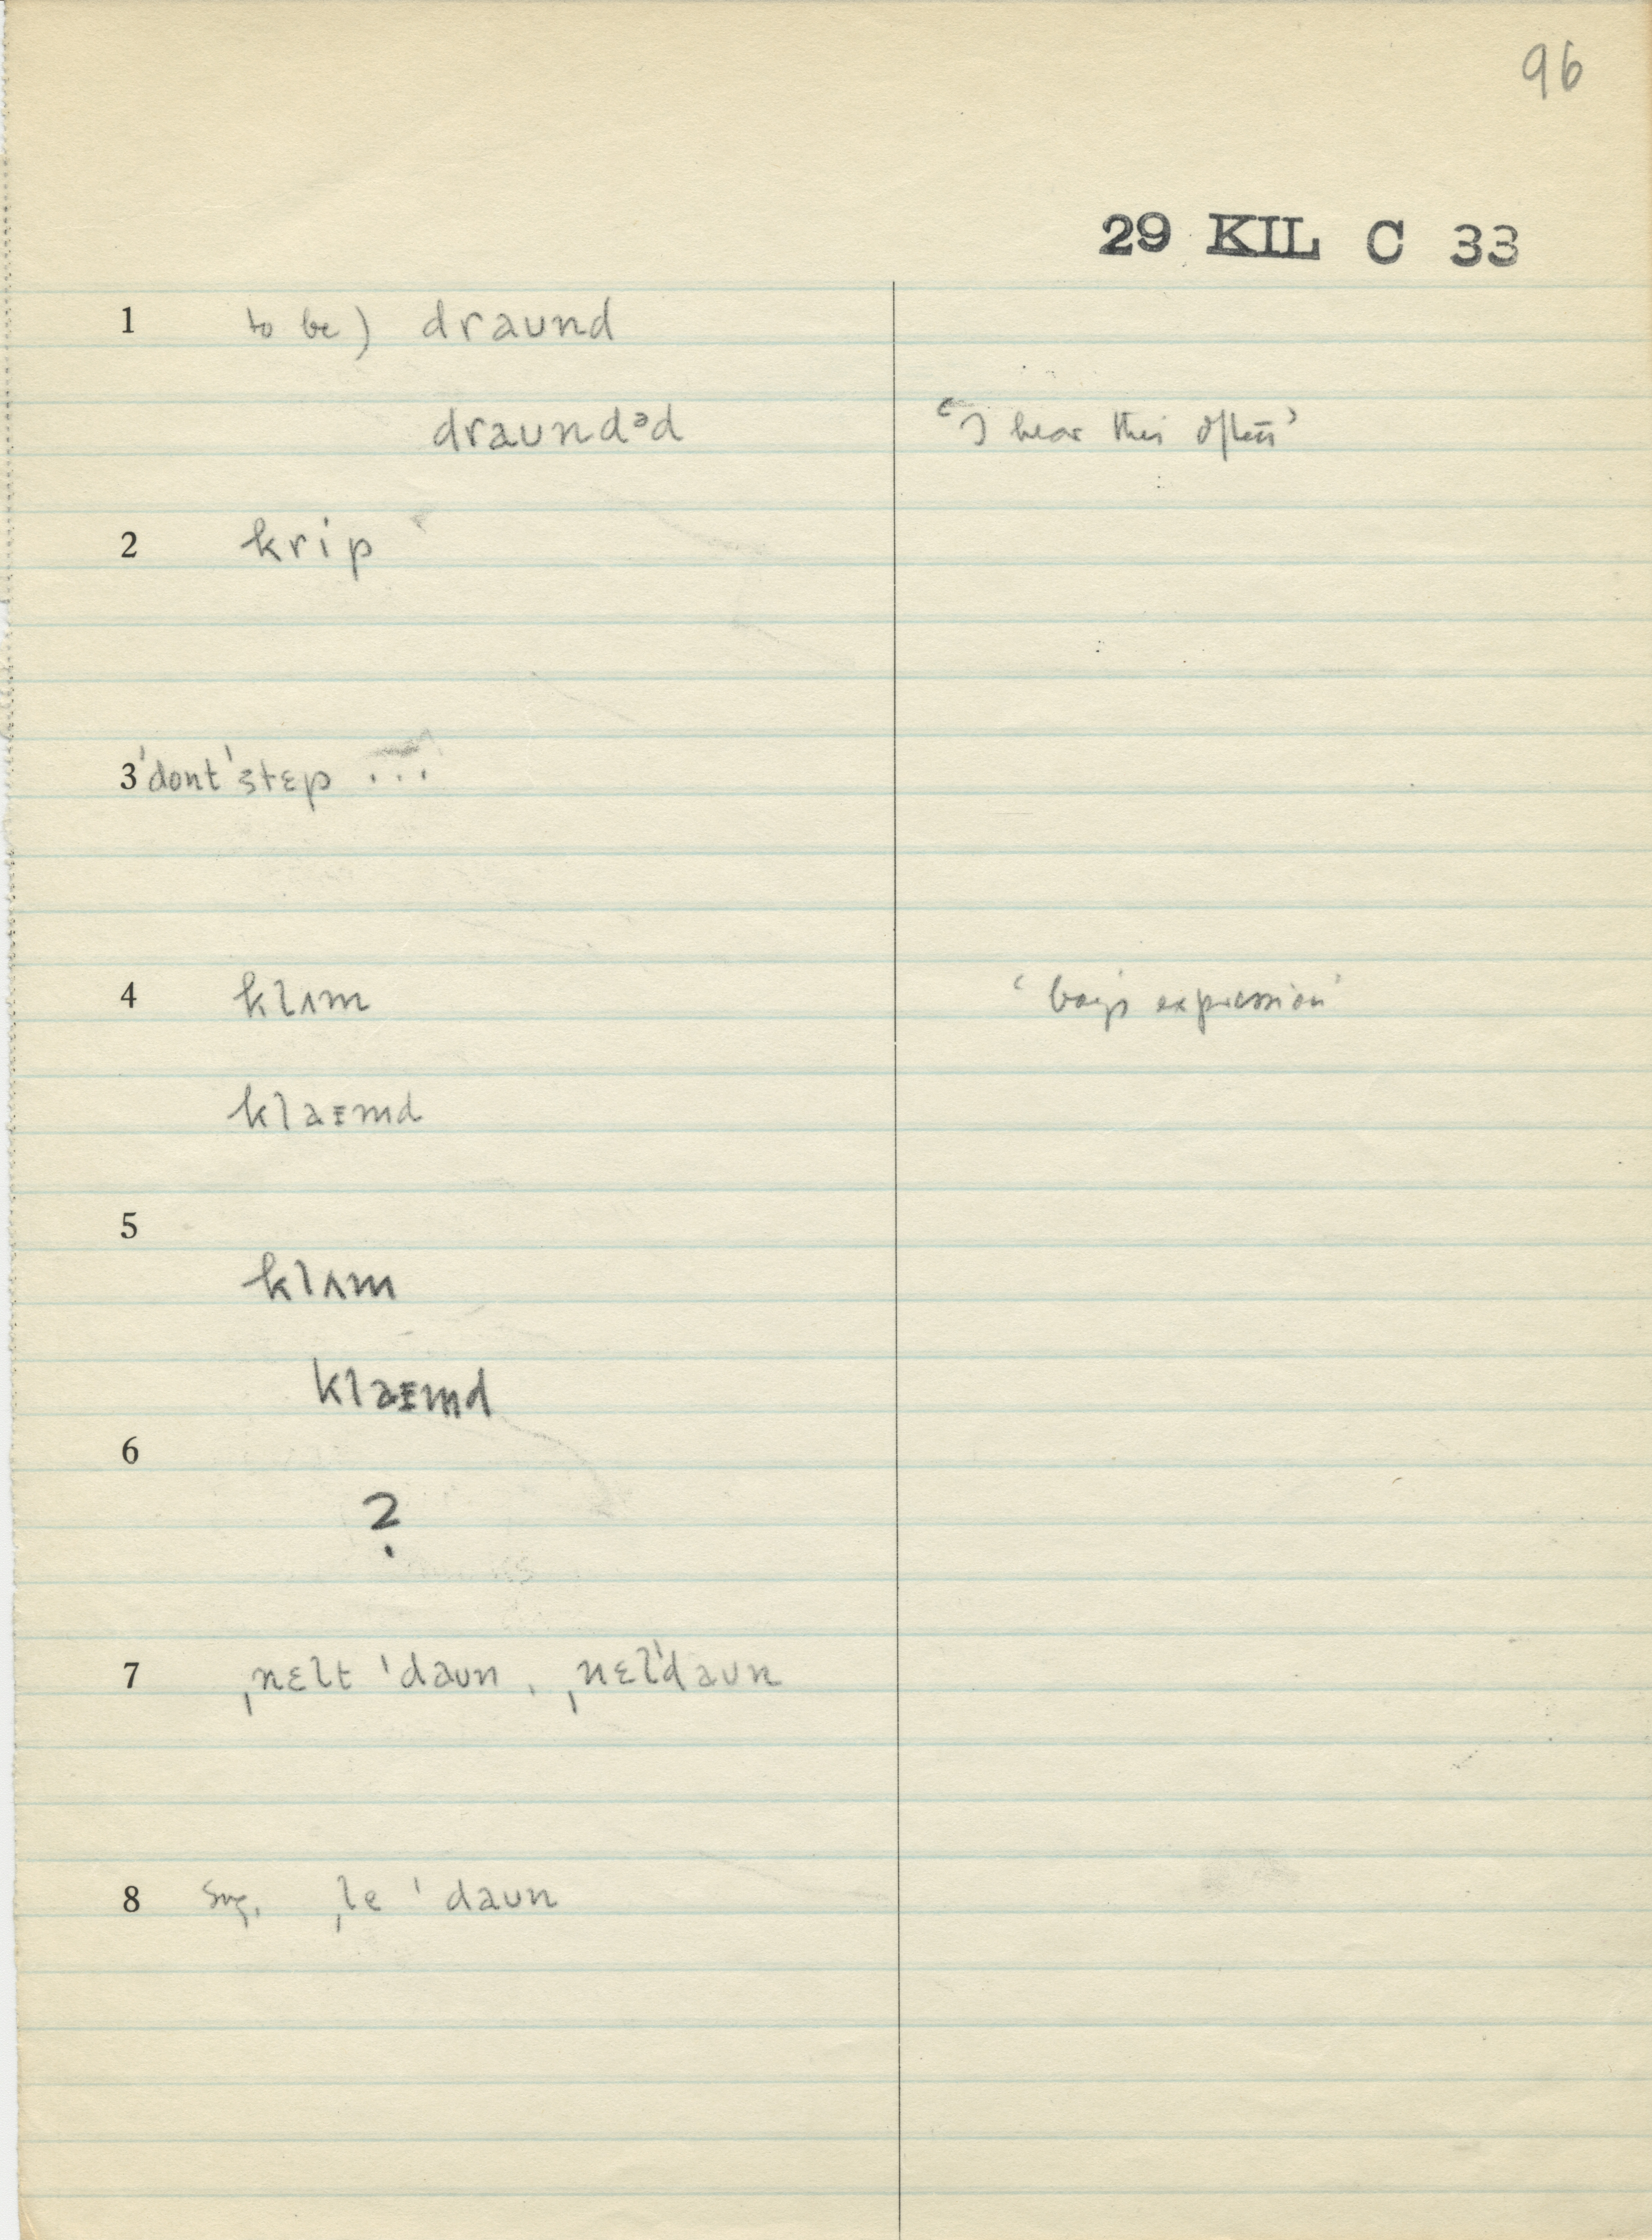 96
29 KIL C 33
1 to be) draʊnd
draʊndᵊd ‘I hear this often’
2 krip
3 ˈdontˈstɛp ...
4 klʌm ‘boy's expression’
klaɪmd
5
klʌm
klaɪmd
6
?
7 ˌnɛlt ˈdaʊn, ˌnɛlˈdaʊn
8 sug. ˌle ˈdaʊn